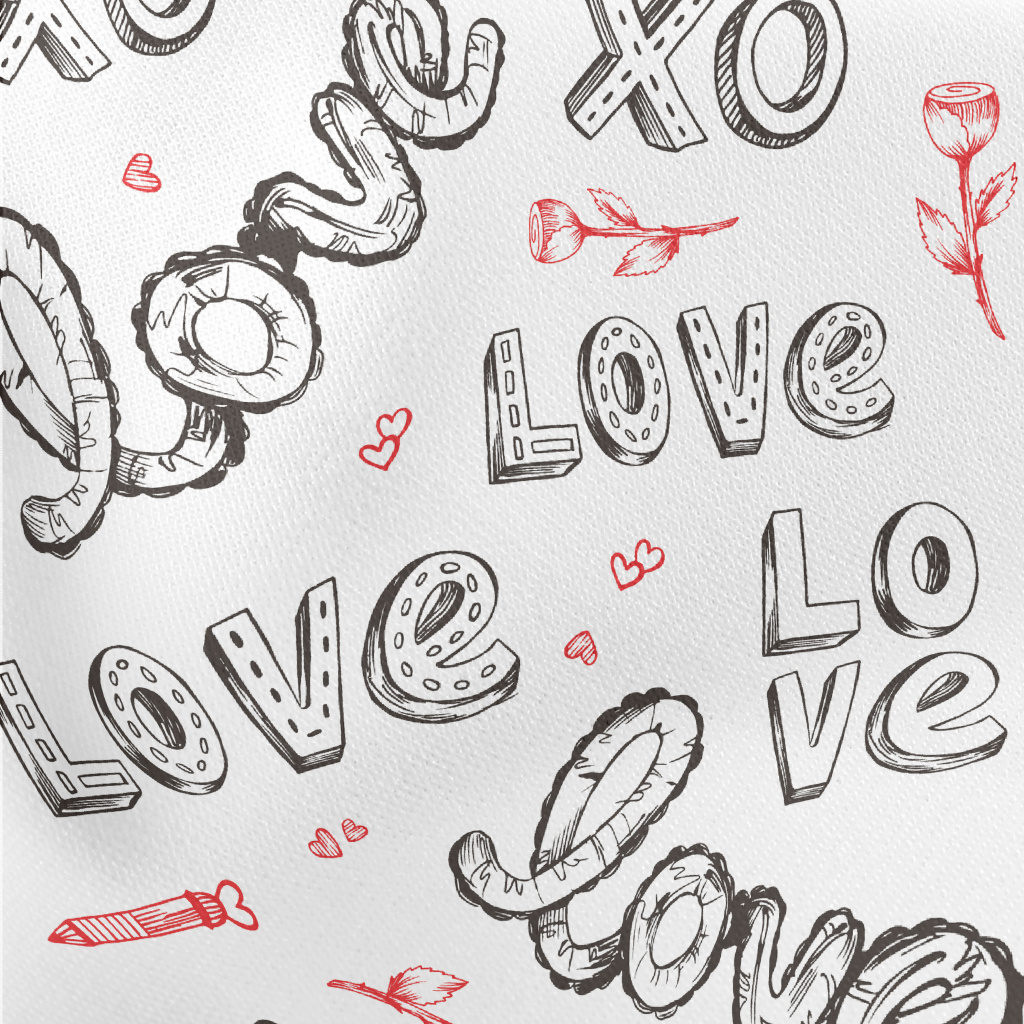 XO
love
XO
LOVe
LO
Ve
LOVe
love